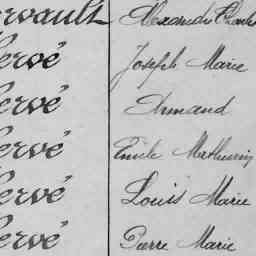 Alexandre
Hervé Joseph Marie
Hervé Armand
Hervé Emile Mathurin
Hervé Louis Marie
Hervé Pierre Marie